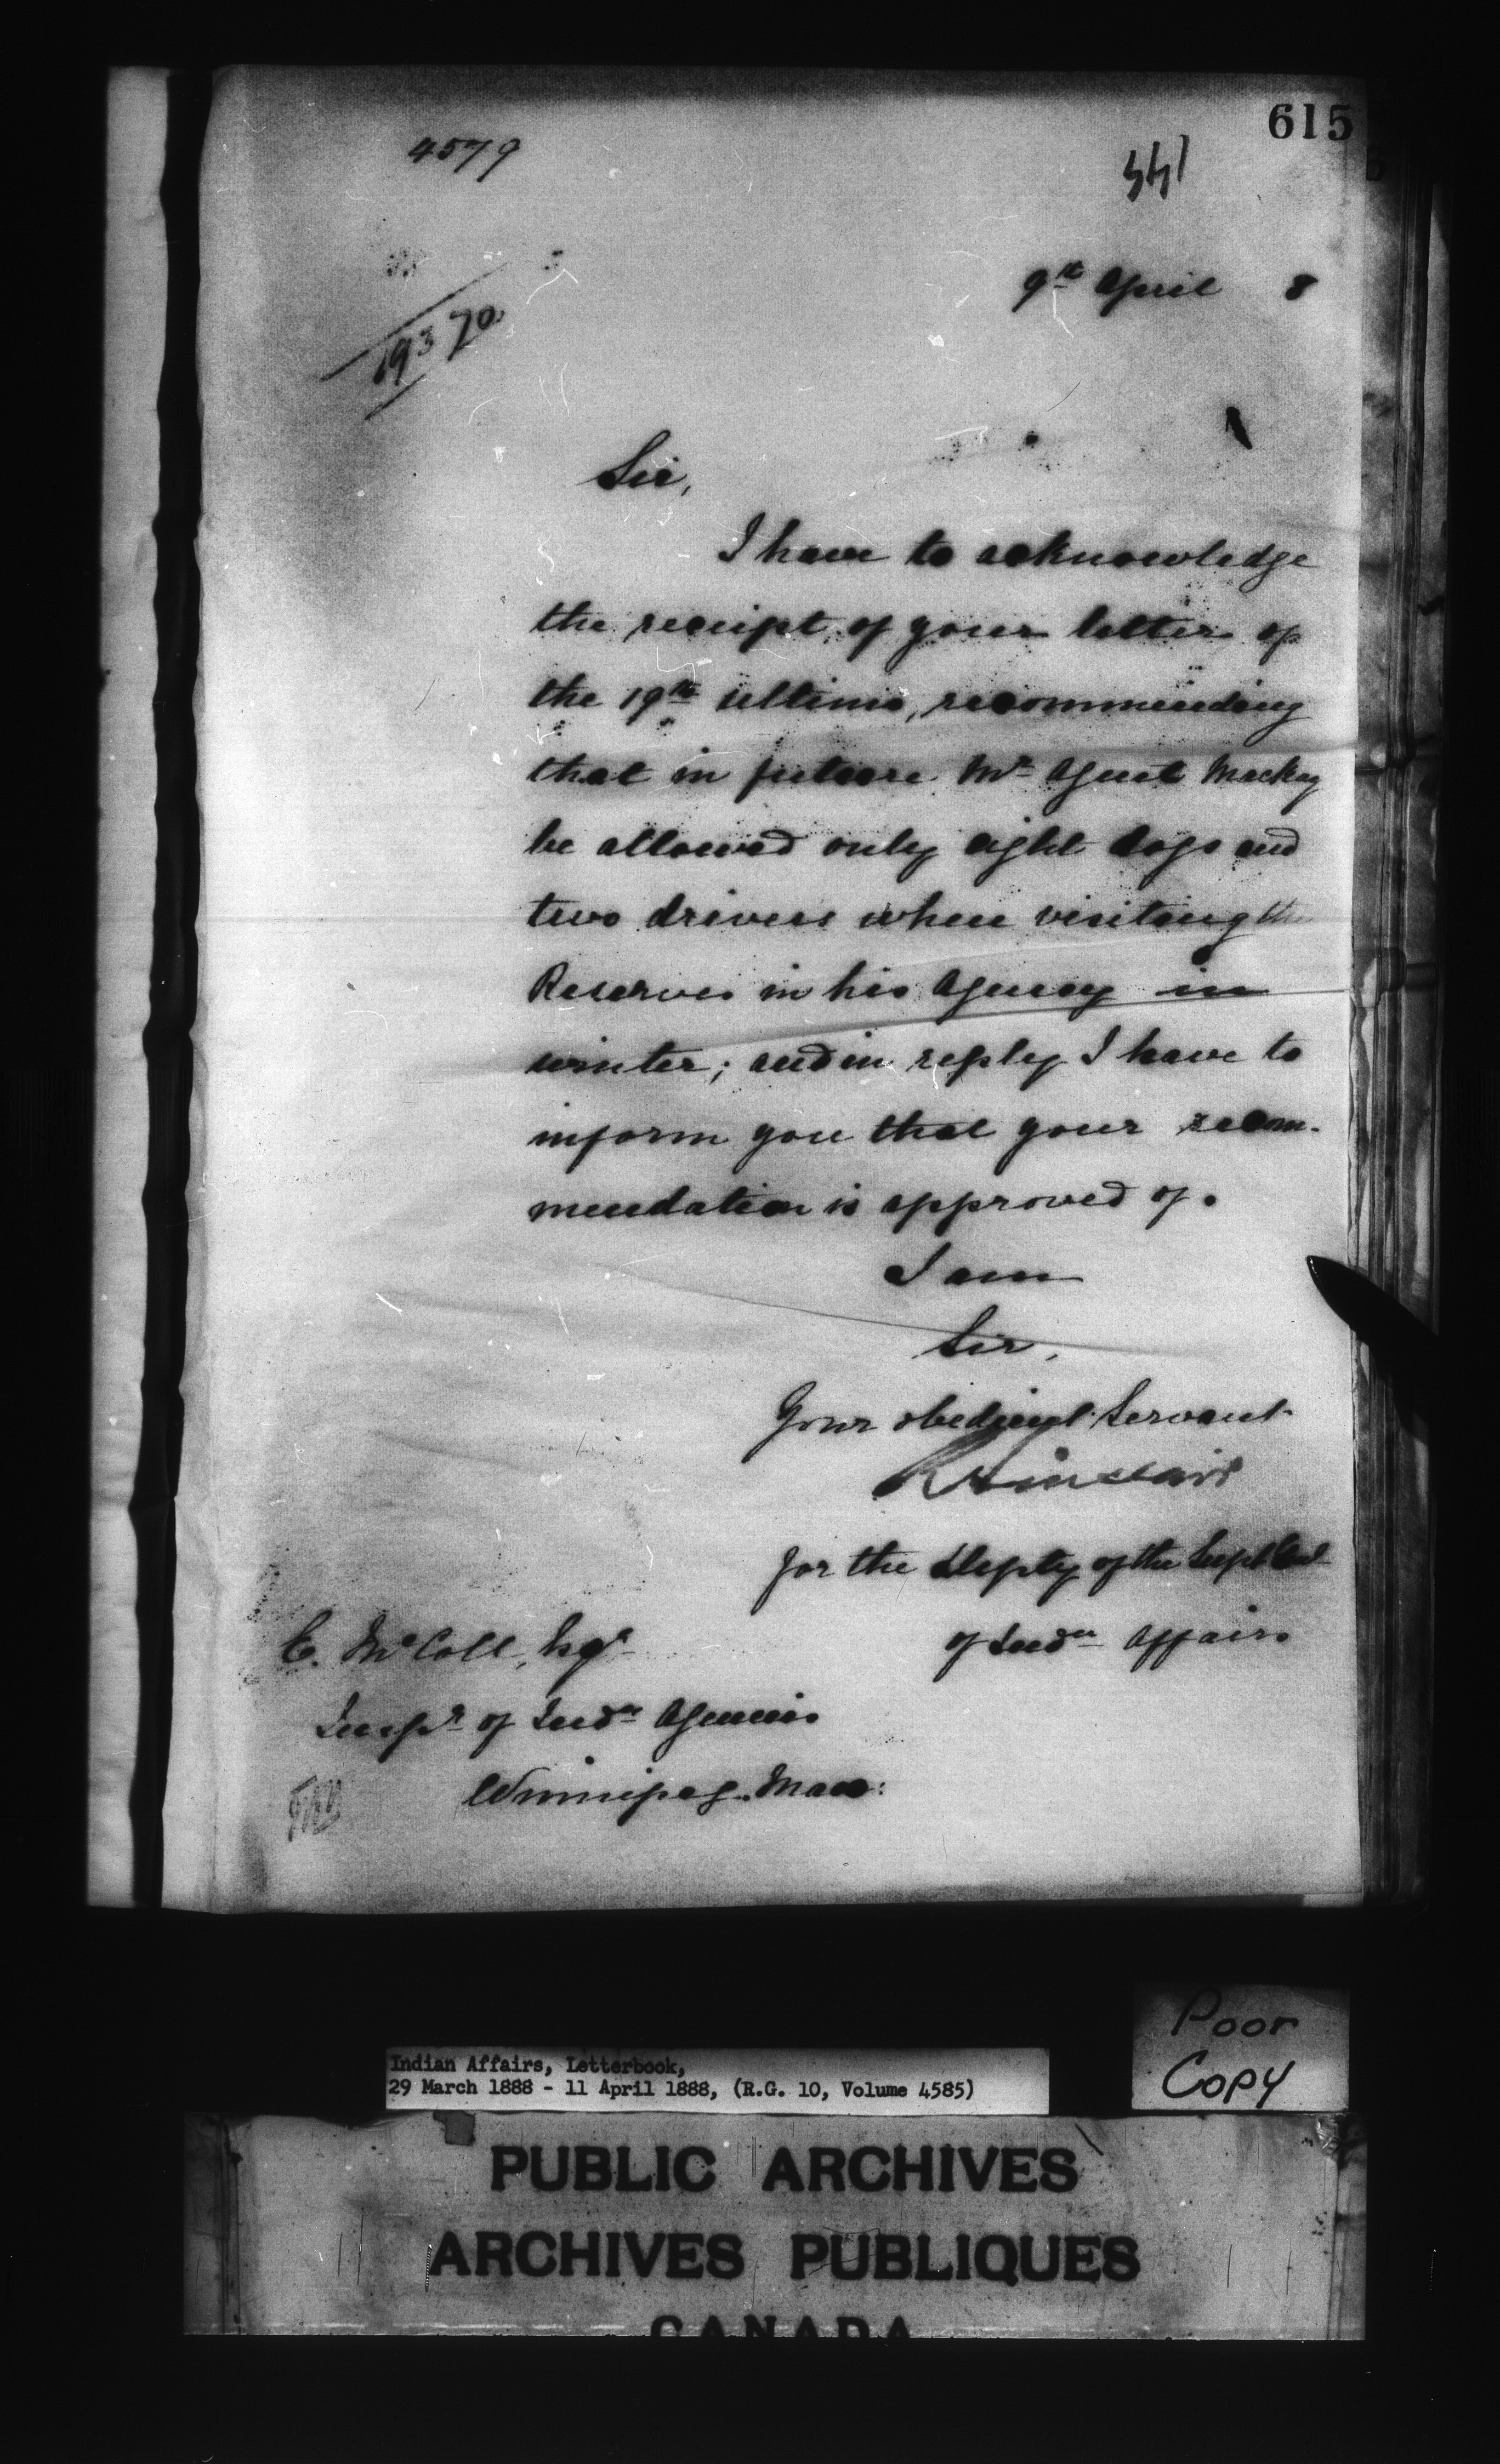 615
4579
144
9th April 8
19370
Sir,
I have to acknowledge
the receipt of your letter of
the 19th ultimo, recommending
that in future Mr Agent Mackay
be allowed only eight dogs and
two drivers when visiting the
Reserves in his Agency in
winter; and in reply I have to
inform you that your recom-
mendation is approved of.
I am
Sir,
Your obedient Servant
R Sinclair
for the Depty of the Supt Genl
of Indn Affairs
E. McColl, Esqr
Inspr of Indn Agencies
Winnipeg. Man:
Poor
Copy
Indian Affairs, Letterbook,
29 March 1888 - 11 April 1888, (R.G. 10, Volume 4585)
PUBLIC ARCHIVES
ARCHIVES PUBLIQUES
CANADA